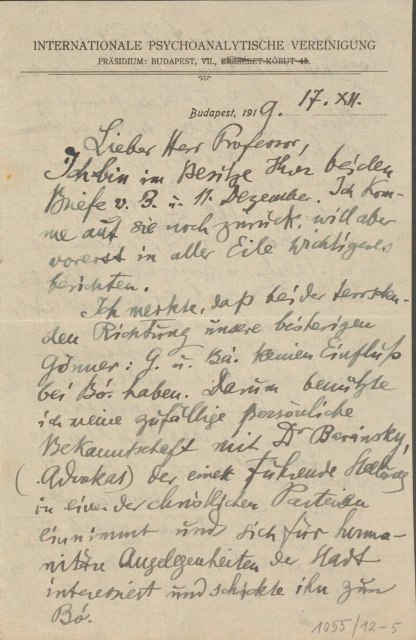 INTERNATIONALE PSYCHOANALYTISCHE VEREINIGUNG
PRÄSIDIUM: BUDAPEST, VII., ERZSÉBET-KÖRUT 45.
Budapest, 1919. 17. XII.
Lieber Herr Professor,
Ich bin im Besitze Ihrer beiden
Briefe v. 3. u. 11. Dezember. Ich kom-
me auf sie noch zurück, will aber
vorerst in aller Eile wichtigeres
berichten.
Ich merkte, daß bei der herrschen-
den Richtung unsere bisherigen
Gönner: G. u. Bá. keinen Einfluß
bei Bó. haben. Darum benützte
ich meine zufällige persönliche
Bekanntschaft mit Dr
(Advokat) der eine führende Stellung
in einer der christlichen Parteien
einnimmt und sich für huma-
nitäre Angelegenheiten der Stadt
interessiert und schickte ihn zum
Bó.
1055/12-5